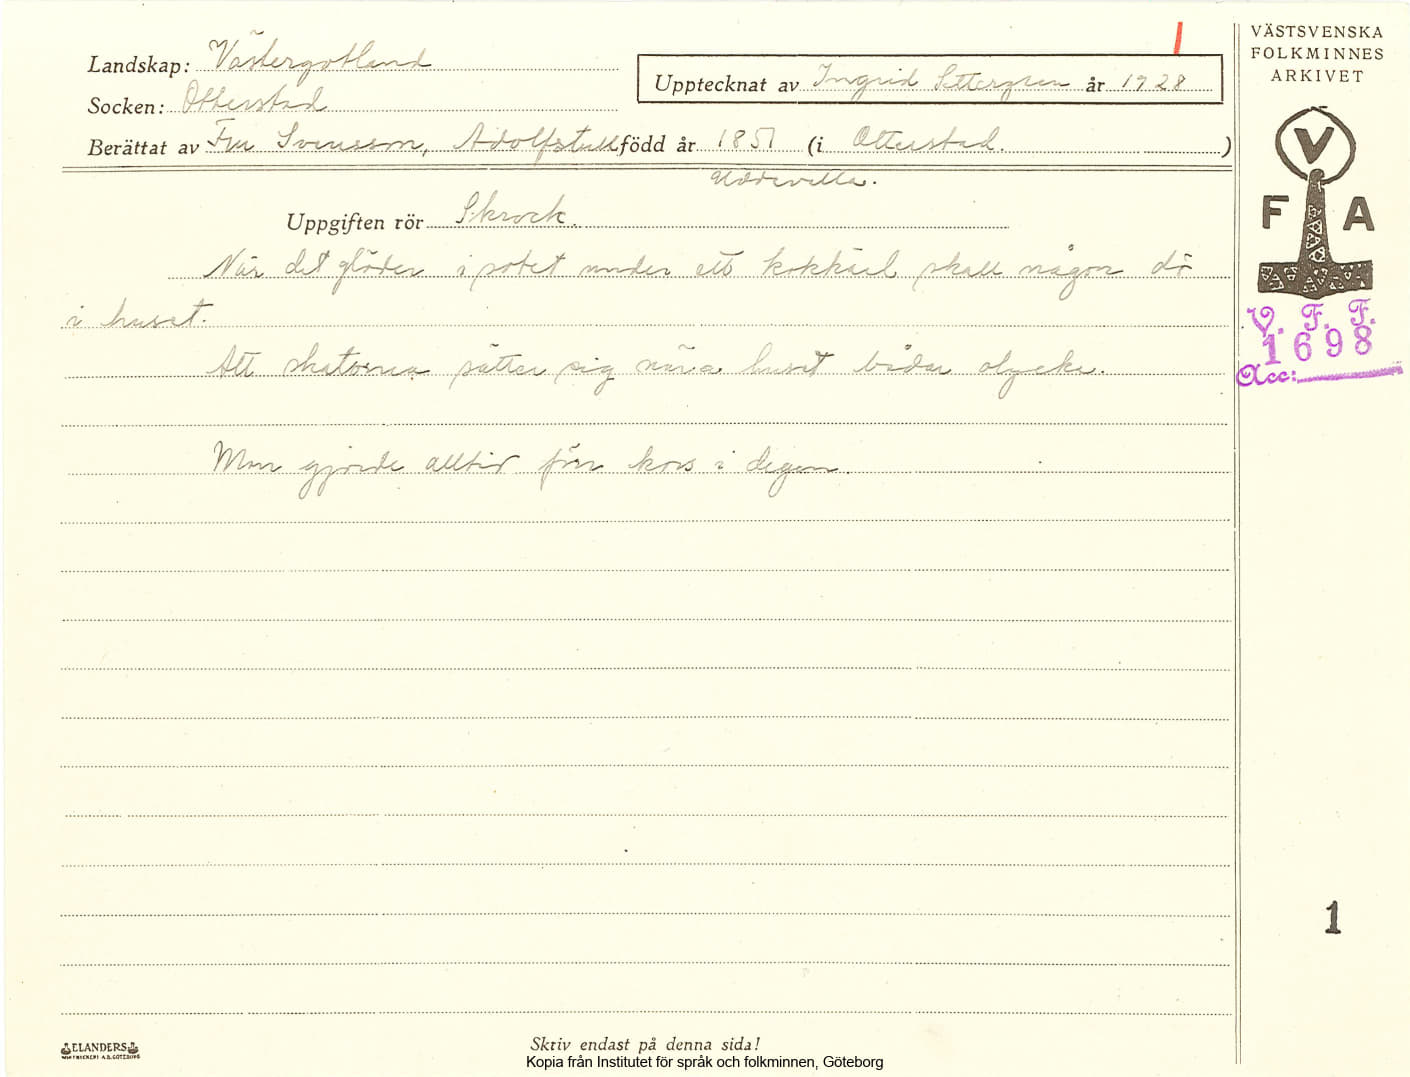 Landskap: Västergötland
Socken: Otterstad
Upptecknat av Ingrid Settergren år 1928
Berättat av Fru Svensson, Adolfstull född år 1851 (i Otterstad. )
Uddevalla.
Uppgiften rör Skrock.
När det glöder i sotet under ett kokkärl skall någon dö
i huset.
Att skatorna sätter sig nära huset bådar olycka.
Man gjorde alltid förr kors i degen.
VÄSTSVENSKA
FOLKMINNES
ARKIVET
V
F A
V. F. F.
1698
Acc:
1
ELANDERS
Skriv endast på denna sida!
Kopia från Institutet för språk och folkminnen, Göteborg